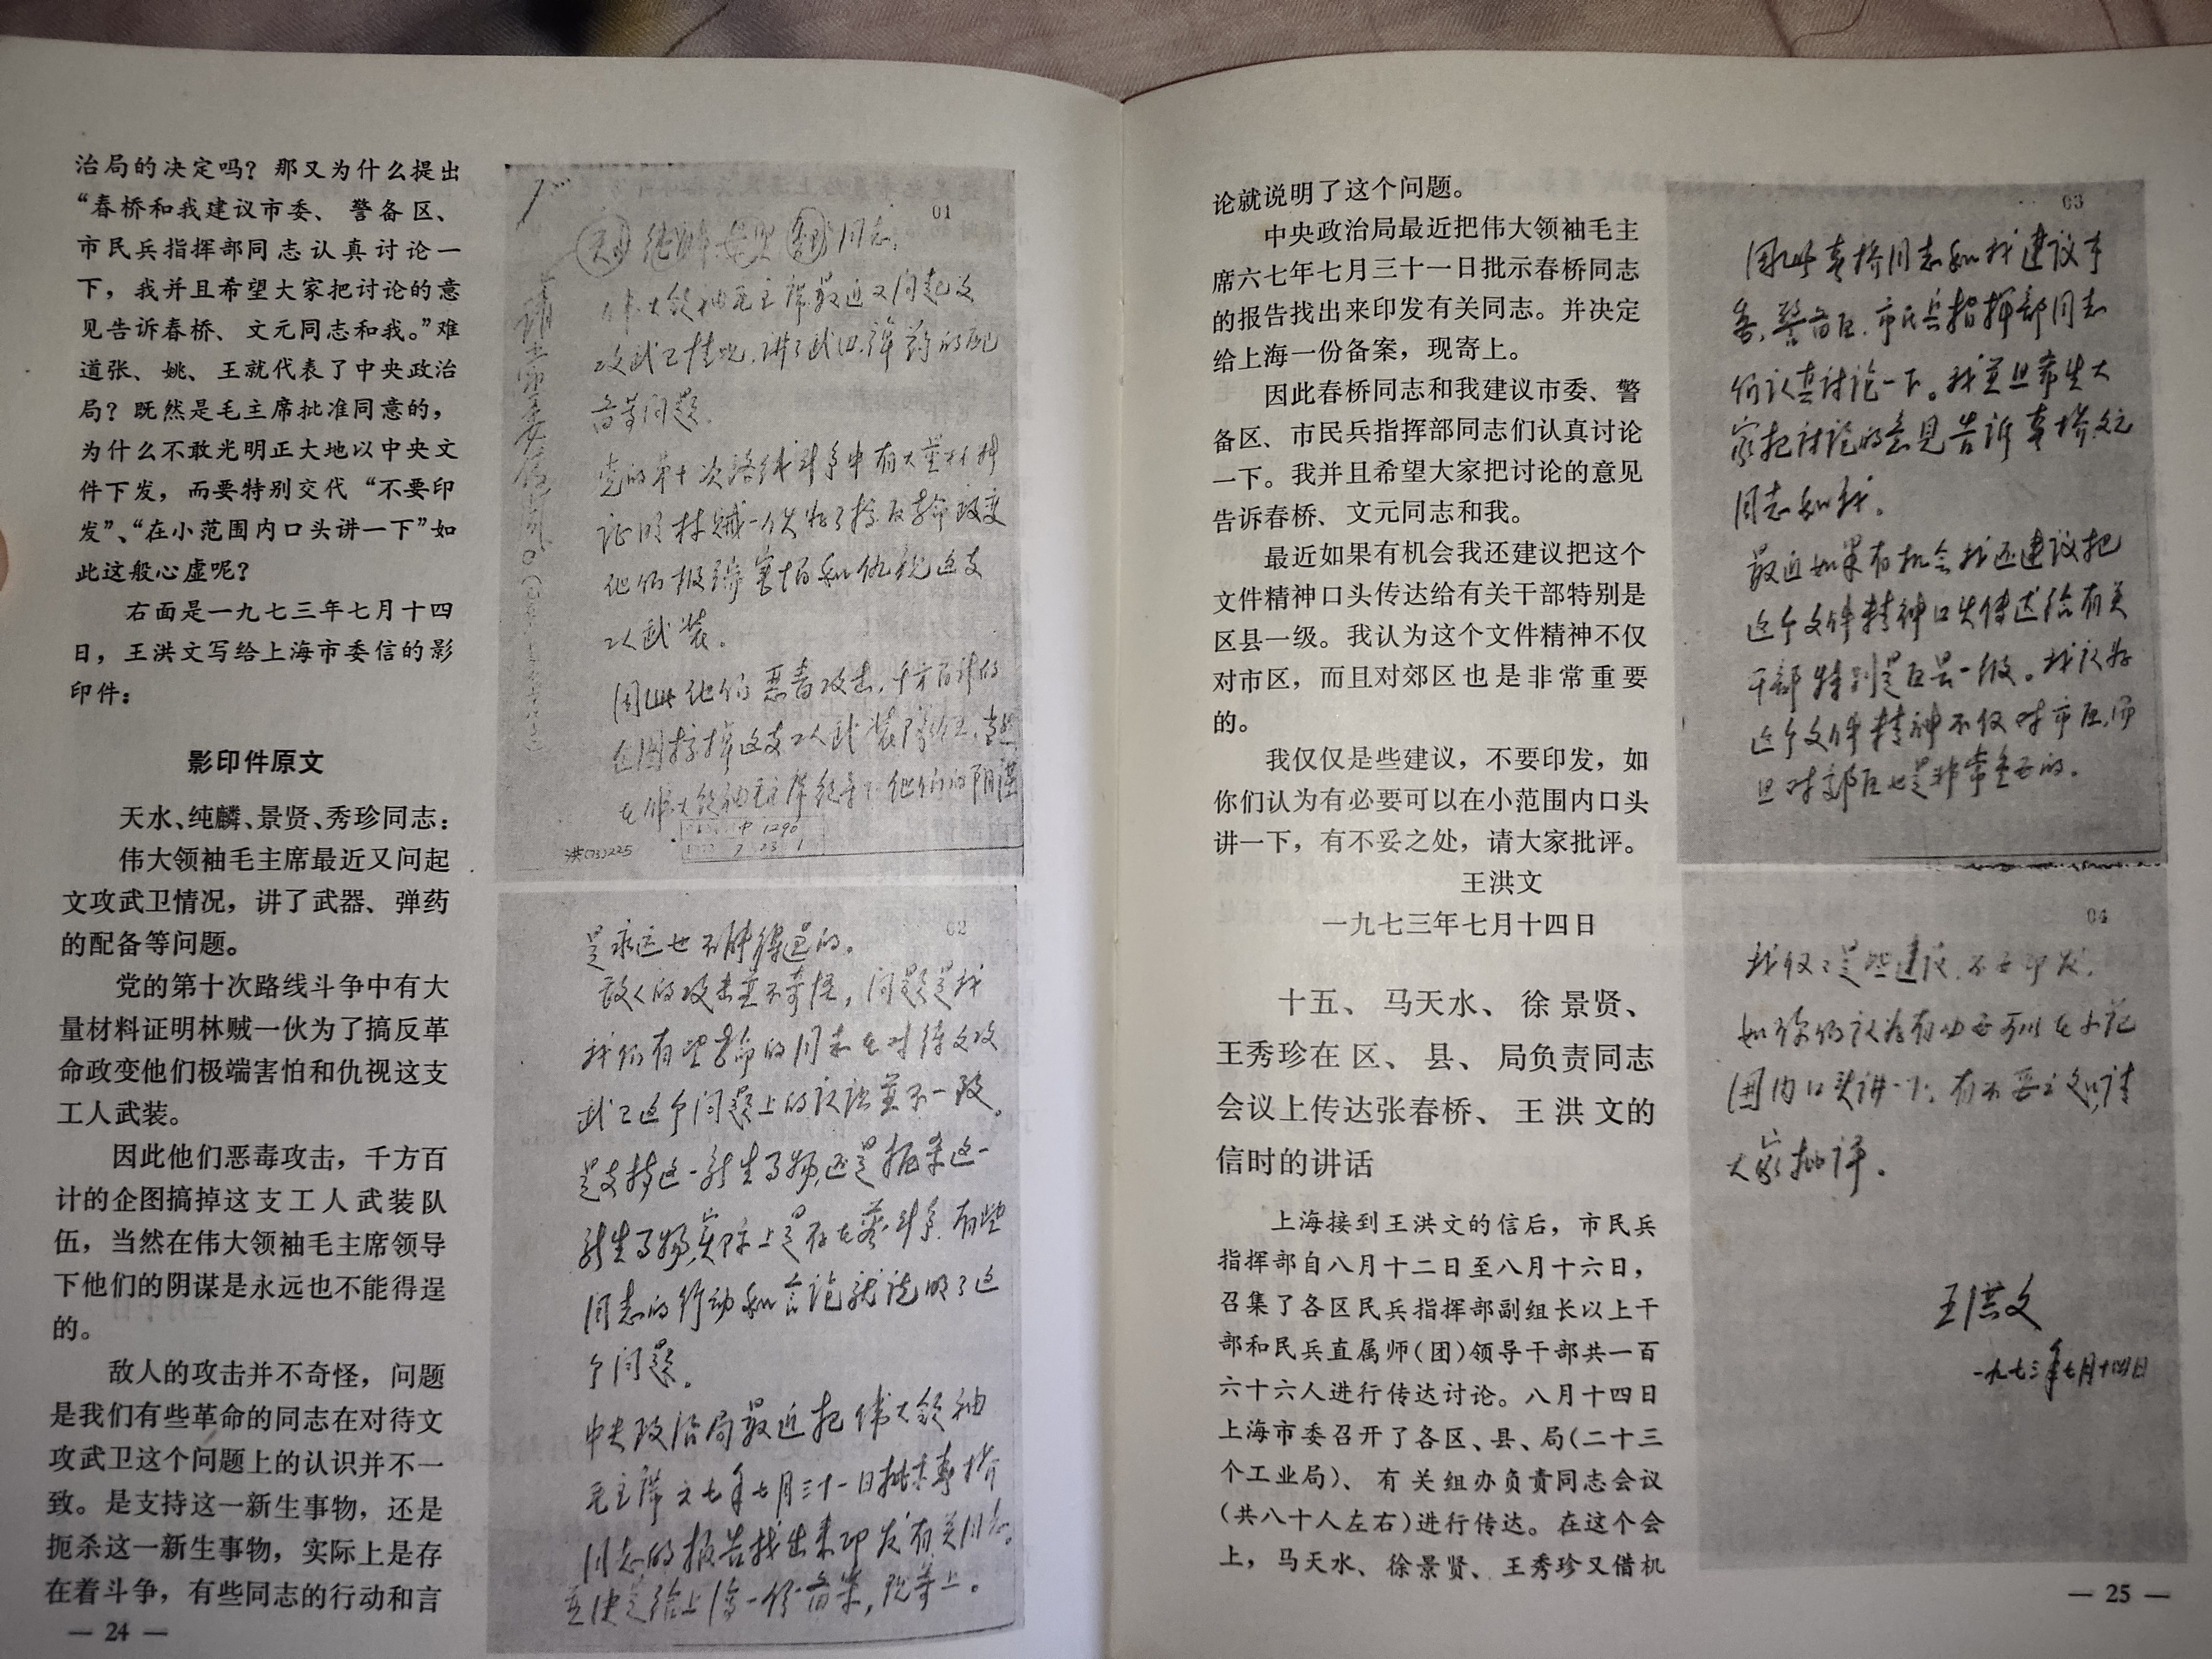 治局的决定吗？那又为什么提出
“春桥和我建议市委、警备区、
市民兵指挥部同志认真讨论一
下，我并且希望大家把讨论的意
见告诉春桥、文元同志和我。”难
道张、姚、王就代表了中央政治
局？既然是毛主席批准同意的，
为什么不敢光明正大地以中央文
件下发，而要特别交代“不要印
发”、“在小范围内口头讲一下”如
此这般心虚呢？
右面是一九七三年七月十四
日，王洪文写给上海市委信的影
印件：
影印件原文
天水、纯麟、景贤、秀珍同志：
伟大领袖毛主席最近又问起
文攻武卫情况，讲了武器、弹药
的配备等问题。
党的第十次路线斗争中有大
量材料证明林贼一伙为了搞反革
命政变他们极端害怕和仇视这支
工人武装。
因此他们恶毒攻击，千方百
计的企图搞掉这支工人武装队
伍，当然在伟大领袖毛主席领导
下他们的阴谋是永远也不能得逞
的。
敌人的攻击并不奇怪，问题
是我们有些革命的同志在对待文
攻武卫这个问题上的认识并不一
致。是支持这一新生事物，还是
扼杀这一新生事物，实际上是存
在着斗争，有些同志的行动和言
— 24 —
01
同志：
伟大领袖毛主席最近又问起文
攻武卫情况，讲了武器、弹药的配
备等问题。
党的第十次路线斗争中有大量材料
证明林贼一伙为了搞反革命政变
他们极端害怕和仇视这支
工人武装。
因此他们恶毒攻击，千方百计的
企图搞掉这支工人武装队伍，当然
在伟大领袖毛主席领导下他们的阴谋
洪(73)225
1290
02
是永远也不能得逞的。
敌人的攻击并不奇怪，问题是我
我们有些革命的同志在对待文攻
武卫这个问题上的认识并不一致。
是支持这一新生事物，还是扼杀这一
新生事物，实际上是存在着斗争，有些
同志的行动和言论就说明了这
个问题。
中央政治局最近把伟大领袖
毛主席六七年七月三十一日批示春桥
同志的报告找出来印发有关同志。
并决定给上海一份备案，现寄上。
论就说明了这个问题。
中央政治局最近把伟大领袖毛主
席六七年七月三十一日批示春桥同志
的报告找出来印发有关同志。并决定
给上海一份备案，现寄上。
因此春桥同志和我建议市委、警
备区、市民兵指挥部同志们认真讨论
一下。我并且希望大家把讨论的意见
告诉春桥、文元同志和我。
最近如果有机会我还建议把这个
文件精神口头传达给有关干部特别是
区县一级。我认为这个文件精神不仅
对市区，而且对郊区也是非常重要
的。
我仅仅是些建议，不要印发，如
你们认为有必要可以在小范围内口头
讲一下，有不妥之处，请大家批评。
王洪文
一九七三年七月十四日
十五、马天水、徐景贤、
王秀珍在区、县、局负责同志
会议上传达张春桥、王洪文的
信时的讲话
上海接到王洪文的信后，市民兵
指挥部自八月十二日至八月十六日，
召集了各区民兵指挥部副组长以上干
部和民兵直属师（团）领导干部共一百
六十六人进行传达讨论。八月十四日
上海市委召开了各区、县、局（二十三
个工业局）、有关组办负责同志会议
（共八十人左右）进行传达。在这个会
上，马天水、徐景贤、王秀珍又借机
— 25 —
03
因此春桥同志和我建议市
委、警备区、市民兵指挥部同志
们认真讨论一下。我并且希望大
家把讨论的意见告诉春桥、文元
同志和我。
最近如果有机会我还建议把
这个文件精神口头传达给有关
干部特别是区县一级。我认为
这个文件精神不仅对市区，而
且对郊区也是非常重要的。
04
我仅仅是些建议，不要印发，
如你们认为有必要可以在小范
围内口头讲一下，有不妥之处，请
大家批评。
王洪文
一九七三年七月十四日